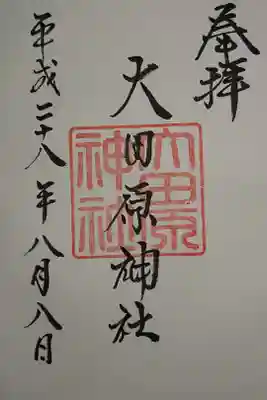 奉拝
大田原神社
平成二十八年八月八日
大田原神社